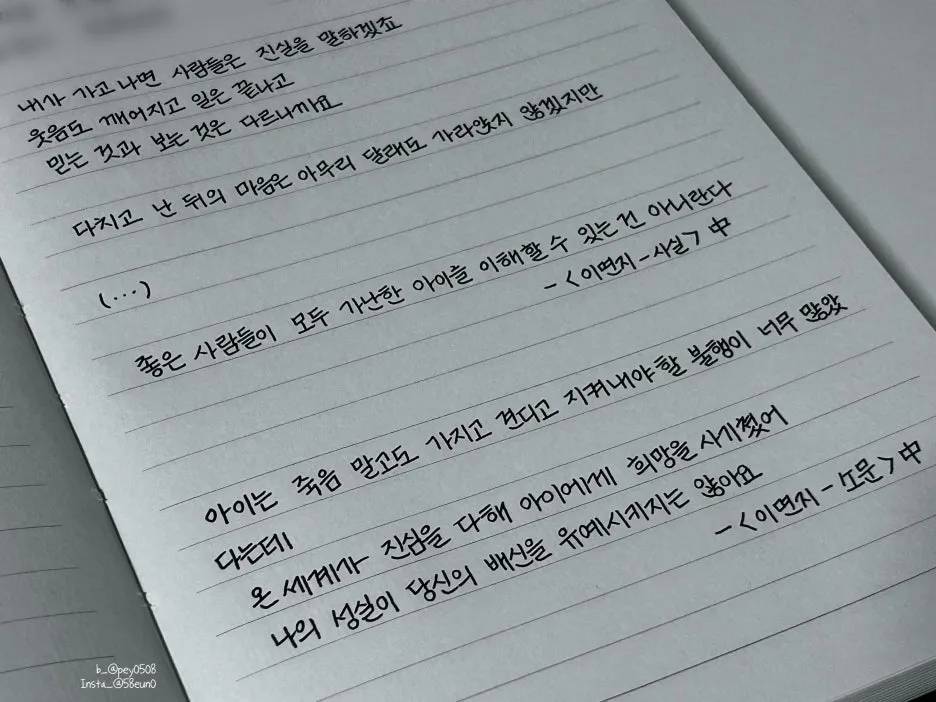 내가 가고 나면 사람들은 진실을 말하겠죠
웃음도 깨어지고 일은 끝나고
믿는 것과 보는 것은 다르니까요
다치고 난 뒤의 마음은 아무리 달래도 가라앉지 않겠지만
(...)
좋은 사람들이 모두 가난한 아이를 이해할 수 있는 건 아니란다
- <이면지 - 사실> 中
아이는 죽음 말고도 가지고 견디고 지켜내야 할 불행이 너무 많았
다는데
온 세계가 진심을 다해 아이에게 희망을 사기쳤어
나의 성실이 당신의 배신을 유예시키지는 않아요
- <이면지 - 소문> 中
b_@pey0508
Insta_@58eun0